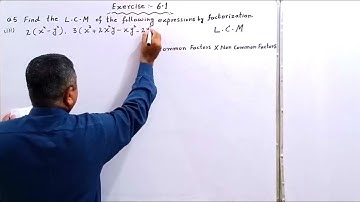 Exercise :- 6.1
Q.5 Find the L.C.M of the following expressions by factorization.
(iii) 2(x²-y²), 3(x³+2x²y-xy²-2y L.C.M
Common Factors X Non Common Factors